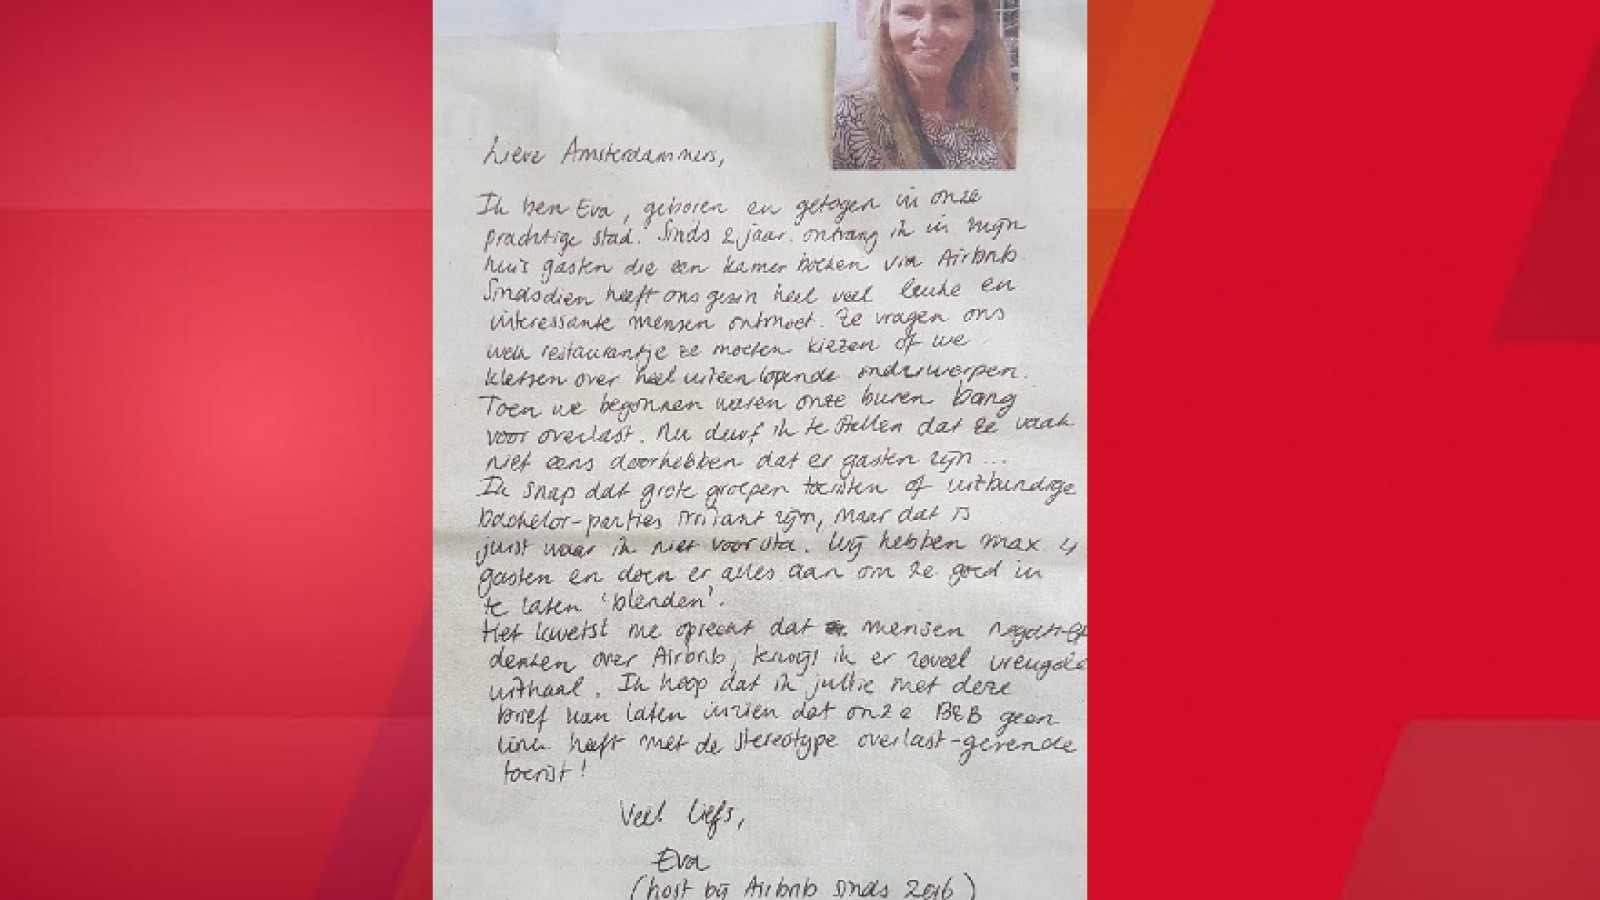 Lieve Amsterdammers,
Ik ben Eva, geboren en getogen in onze
prachtige stad. Sinds 2 jaar ontvang ik in mijn
huis gasten die een kamer boeken via Airbnb.
Sindsdien heeft ons gezin heel veel leuke en
interessante mensen ontmoet. Ze vragen ons
welk restaurantje ze moeten kiezen of we
kletsen over heel uiteenlopende onderwerpen.
Toen we begonnen waren onze buren bang
voor overlast. Nu durf ik te stellen dat ze vaak
niet eens doorhebben dat er gasten zijn ...
Ik snap dat grote groepen toeristen of uitbundige
bachelor-parties irritant zijn, maar dat is
juist waar ik niet voor sta. Wij hebben max 4
gasten en doen er alles aan om ze goed in
te laten 'blenden'.
Het kwetst me oprecht dat mensen negatief
denken over Airbnb, terwijl ik er zoveel vreugde
uithaal. Ik hoop dat ik jullie met deze
brief kan laten inzien dat onze B&B geen
link heeft met de stereotype overlast-gevende
toerist!
Veel liefs,
Eva
(host bij Airbnb sinds 2016)